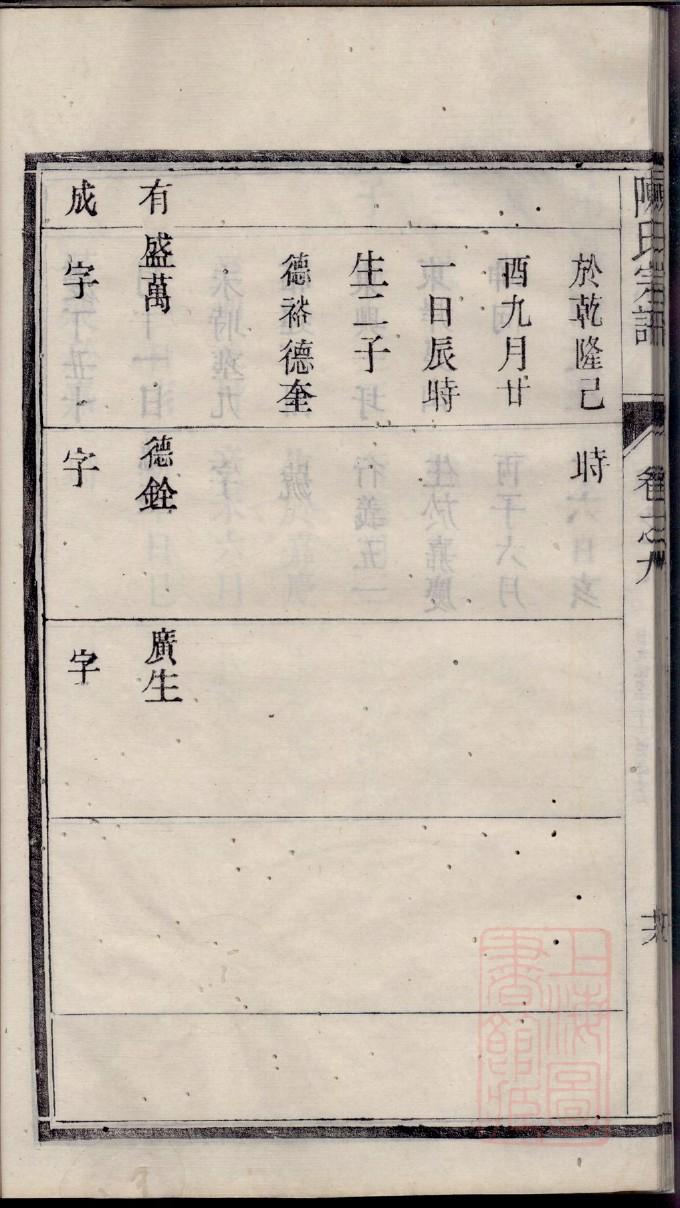 陳氏宗譜
卷之九
於乾隆己
時
酉九月廿
一日辰時
生二子
德裕德奎
有
盛萬
德銓
廣生
成
字
字
字
上海圖
書館藏